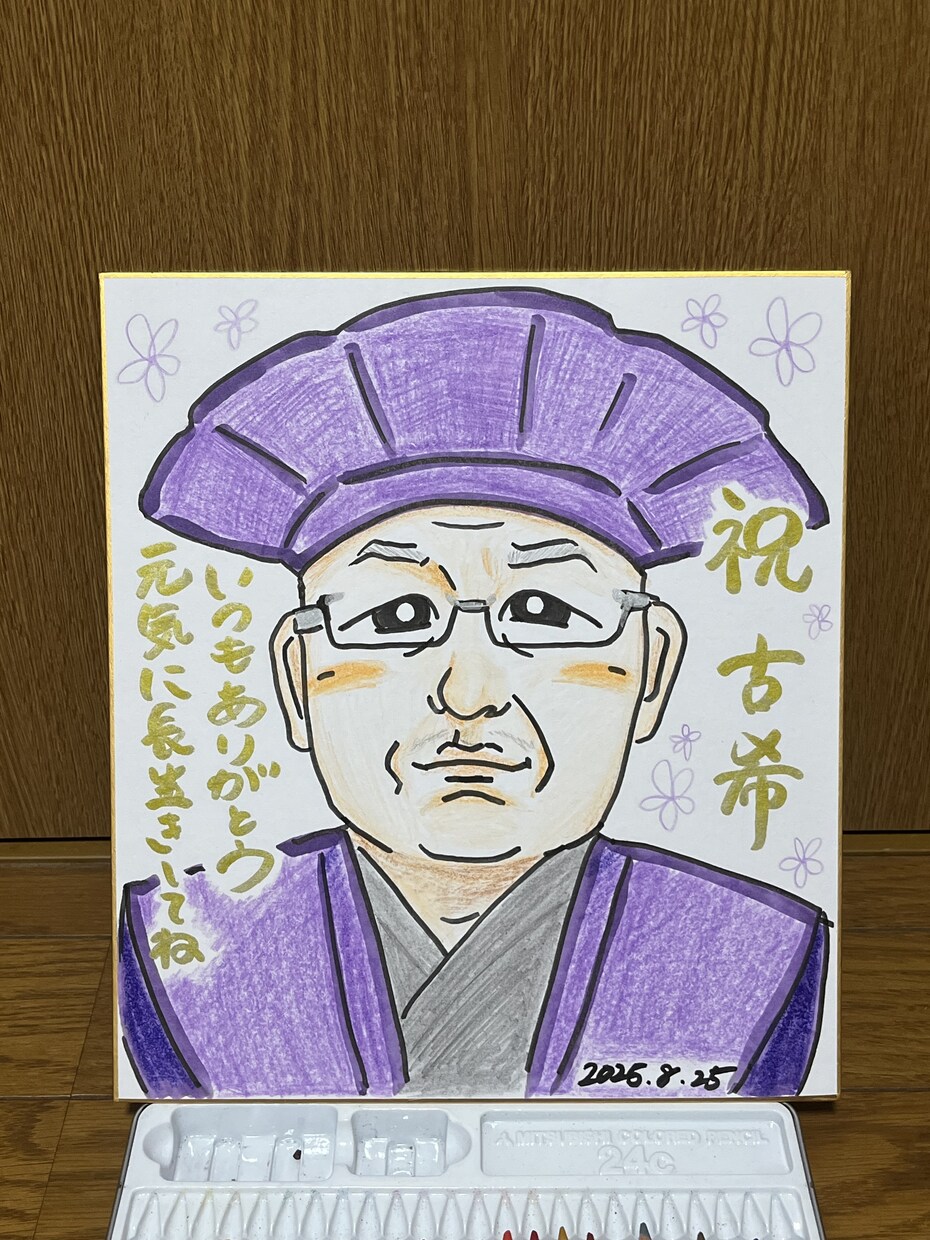 祝 古希
いつもありがとう
元気に長生きしてね
2025.8.25
MITSUBISHI COLORED PENCIL
24c